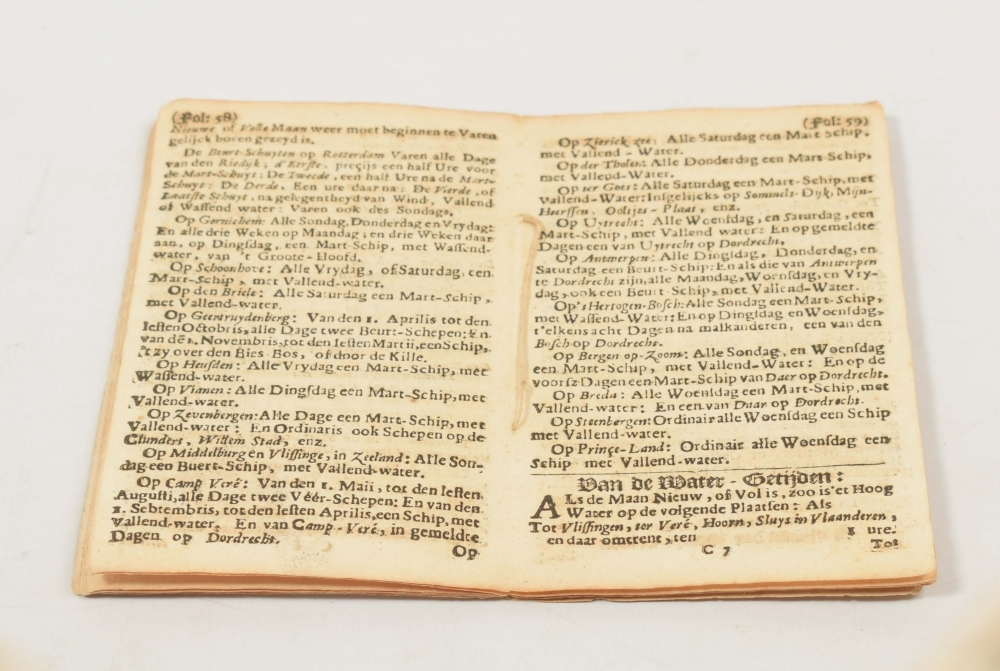 (Fol: 58)
Nieuwe of Volle Maan weer moet beginnen te Varen
gelijck boven gezeyd is.
De Beurt-Schuyten op Rotterdam Varen alle Dage
van den Riedijk; d'Eerste, precijs een half Ure voor
de Mart-Schuyt: De Tweede, een half Ure na de Mart-
Schuyt: De Derde, Een ure daar na: De Vierde, of
Laatste Schuyt, na gelegentheyd van Wind, Vallend
of Wassend water: Varen ook des Sondags.
Op Gornichem: Alle Sondag, Donderdag en Vrydag:
En alle drie Weken op Maandag; en drie Weken daar
aan, op Dingsdag, een Mart-Schip, met Wassend-
water, van 't Groote-Hoofd.
Op Schoonhove: Alle Vrydag, of Saturdag, een
Mart-Schip, met Vallend-water.
Op den Briele: Alle Saturdag een Mart-Schip,
met Vallend-water.
Op Geentruydenberg: Van den 1. Aprilis tot den
lesten Octobris, alle Dage twee Beurt-Schepen: En
van dē 1. Novembris, tot den lesten Martii, een Schip,
't zy over den Bies-Bos, of door de Kille.
Op Heusden: Alle Vrydag een Mart-Schip, met
Wassend-water.
Op Vianen: Alle Dingsdag een Mart-Schip, met
Vallend-water.
Op Zevenbergen: Alle Dage een Mart-Schip, met
Vallend-water: En Ordinaris ook Schepen op de
Clundert, Willem Stad, enz.
Op Middelburg en Vlissinge, in Zeeland: Alle Son-
dag een Buert-Schip, met Vallend-water.
Op Camp Verê: Van den 1. Maii, tot den lesten
Augusti, alle Dage twee Véér-Schepen; En van den
1. Sebtembris, tot den lesten Aprilis, een Schip, met
Vallend-water. En van Camp-Verê, in gemeldte
Dagen op Dordrecht.
Op
(Fol: 59)
Op Zierick zee: Alle Saturdag een Mart Schip,
met Vallend-Water.
Op der Tholen: Alle Donderdag een Mart-Schip,
met Valleud-Water.
Op ter Goes: Alle Saturdag een Mart-Schip, met
Vallend-Water: Insgelijcks op Sommels-Dijk, Mijn-
Heerssen, Ooltjes-Plaat, enz.
Op Uytrecht: Alle Woensdag, en Saturdag, een
Mart-Schip, met Vallend water: En op gemeldte
Dagen een van Uytrecht op Dordrecht,
Op Antwerpen: Alle Dingsdag, Donderdag, en
Saturdag een Beurt-Schip: En als die van Antwerpen
te Dordrecht zijn, alle Maandag, Woensdag, en Vry-
dag, ook een Beurt-Schip, met Vallend-Water.
Op 's Hertogen-Bosch: Alle Sondag een Mart-Schip,
met Wassend-Water: En op Dingsdag en Woensdag,
t'elkens acht Dagen na malkanderen, een van den
Bosch op Dordrecht.
Op Bergen op-Zoom: Alle Sondag, en Woensdag
een Mart-Schip, met Vallend-Water: En op de
voorsz Dagen een Mart-Schip van Daer op Dordrecht.
Op Breda: Alle Woensdag een Mart-Schip, met
Vallend-water: En een van Daar op Dordrecht.
Op Steenbergen: Ordinair alle Woensdag een Schip
met Vallend-water.
Op Prinçe-Land: Ordinair alle Woensdag een
Schip met Vallend-water.
Van de Water-Getijden:
Als de Maan Nieuw, of Vol is, zoo is'et Hoog
Water op de volgende Plaatsen: Als
Tot Vlissingen, ter Verê, Hoorn, Sluys in Vlaanderen,
en daar omtrent, ten 1 ure.
C 7 Tot